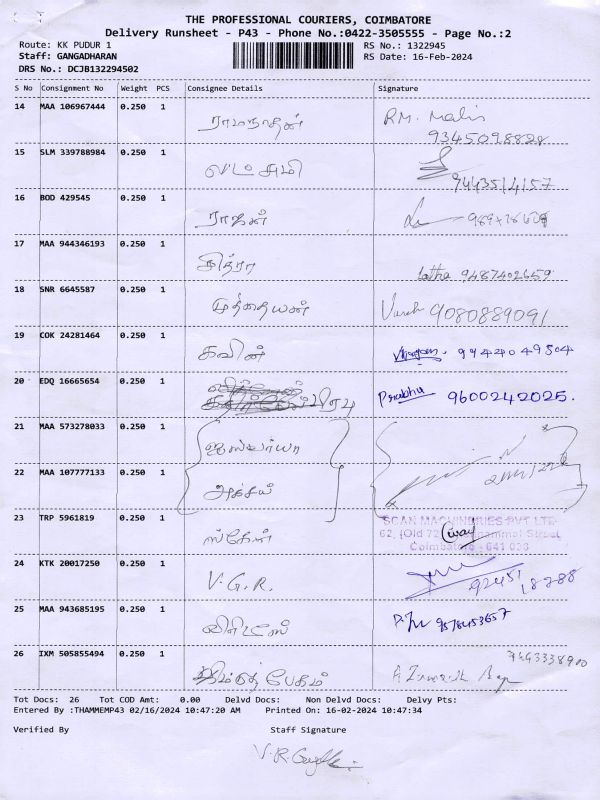 THE PROFESSIONAL COURIERS, COIMBATORE
Delivery Runsheet - P43 - Phone No.:0422-3505555 - Page No.:2
Route: KK PUDUR 1 RS No.: 1322945
Staff: GANGADHARAN RS Date: 16-Feb-2024
DRS No.: DCJB132294502
S No Consignment No Weight PCS Consignee Details Signature
14 MAA 106967444 0.250 1 ராமநாதன் RM. Malis
9345098828
15 SLM 339788984 0.250 1 லட்சுமி
9443514157
16 BOD 429545 0.250 1 ராதன்
17 MAA 944346193 0.250 1 சித்ரா Latha 9487402659
18 SNR 6645587 0.250 1 முத்தையன் 9080889091
19 COK 24281464 0.250 1 கவின் 9942049504
20 EDQ 16665654 0.250 1 பிரபு Prabhu 9600242025.
21 MAA 573278033 0.250 1 ஐஸ்வர்யா
22 MAA 107777133 0.250 1 அக்சய்
23 TRP 5961819 0.250 1 ஸ்கேன் SCAN MACHINDRIES PVT LTD
62, (Old 72 Street,
Coimbatore - 641 038
24 KTK 20017250 0.250 1 V.G.R. 92451 18288
25 MAA 943685195 0.250 1 9578453657
26 IXM 505855494 0.250 1 பேகம் 7493338900
Tot Docs: 26 Tot COD Amt: 0.00 Delvd Docs: Non Delvd Docs: Delvy Pts:
Entered By :THAMMEMP43 02/16/2024 10:47:20 AM Printed On: 16-02-2024 10:47:34
Verified By Staff Signature